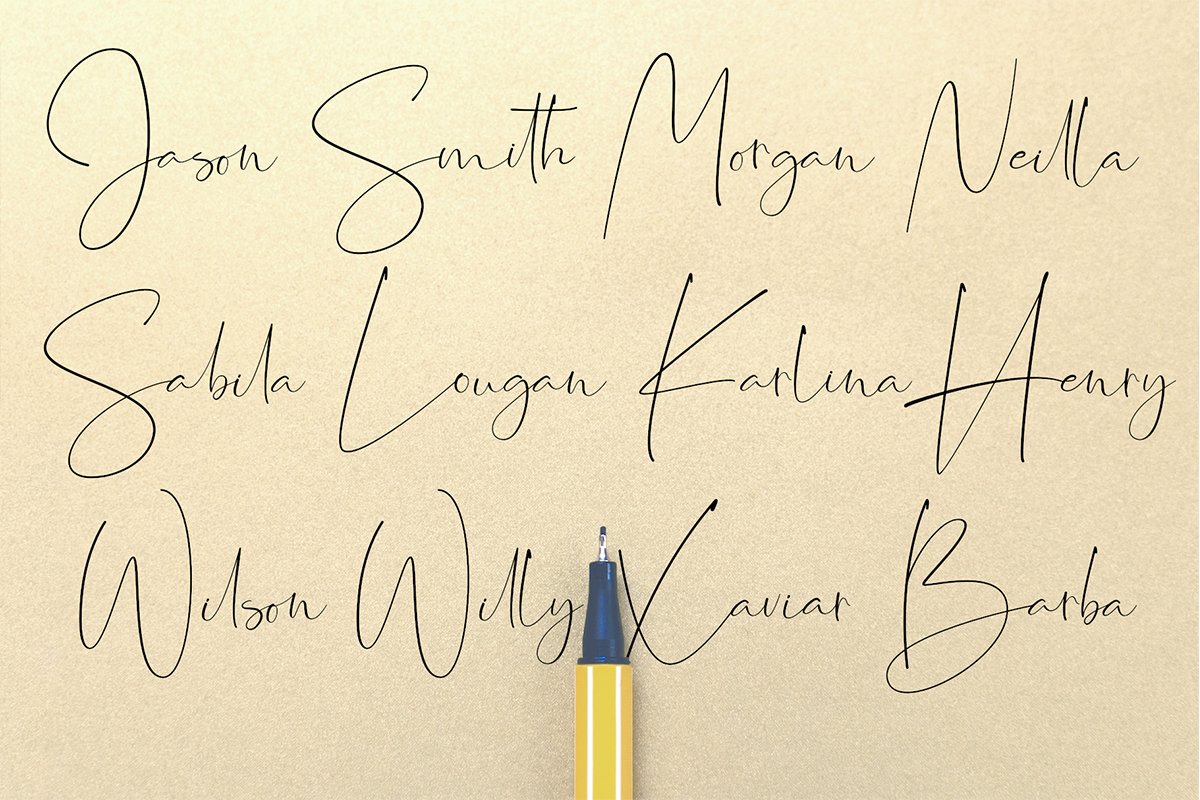 Jason Smith Morgan Neilla
Sabila Lougan Karlina Henry
Wilson Willy Xaviar Barba